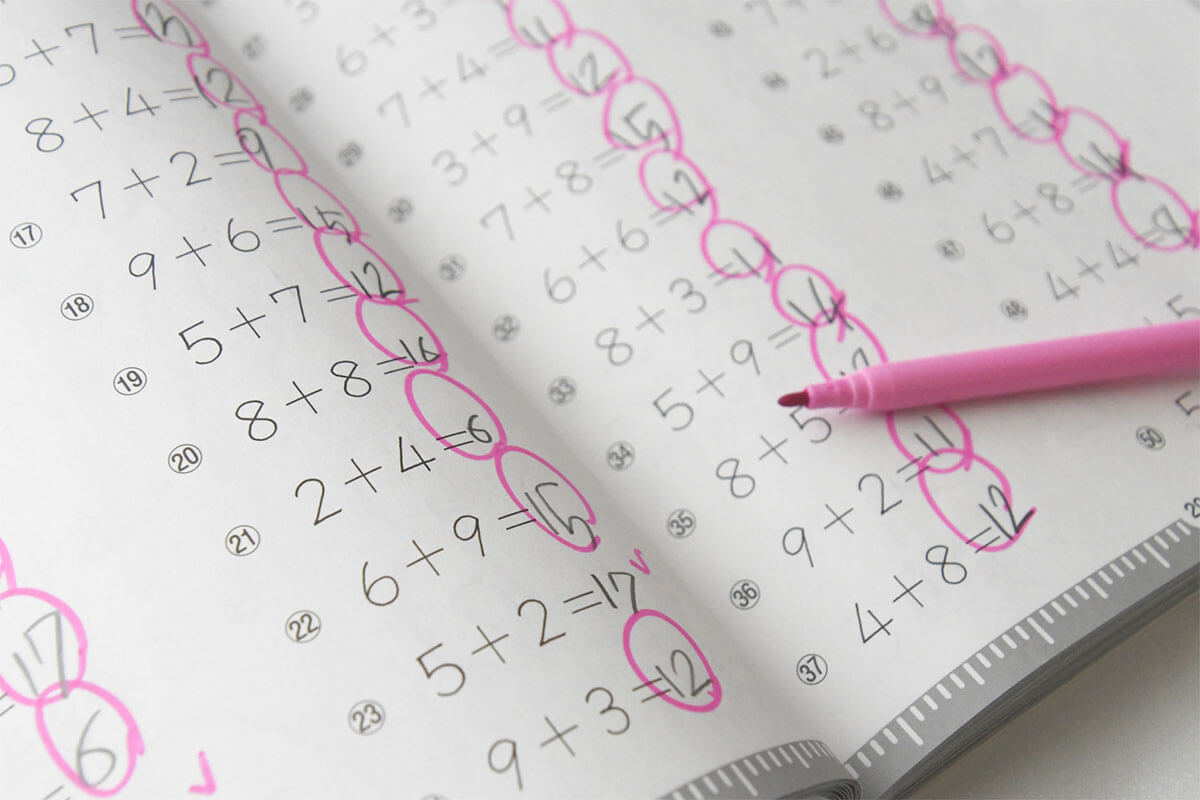 +7=13
8+4=12
⑰ 7+2=9
⑱ 9+6=15
⑲ 5+7=12
⑳ 8+8=16
㉑ 2+4=6
㉒ 6+9=15
㉓ 5+2=17
9+3=12
17
6
㉗ 3
㉘ 6+3
㉙ 7+4=11
㉚ 3+9=12
㉛ 7+8=15
㉜ 6+6=12
㉝ 8+3=11
㉞ 5+9=14
㉟ 8+5=
㊱ 9+2=11
㊲ 4+8=12
7+
㊹ 2+6=8
㊺ 8+9=17
㊻ 4+7=11
㊼ 6+8=14
㊽ 4+4=8
+5
㊿ 5